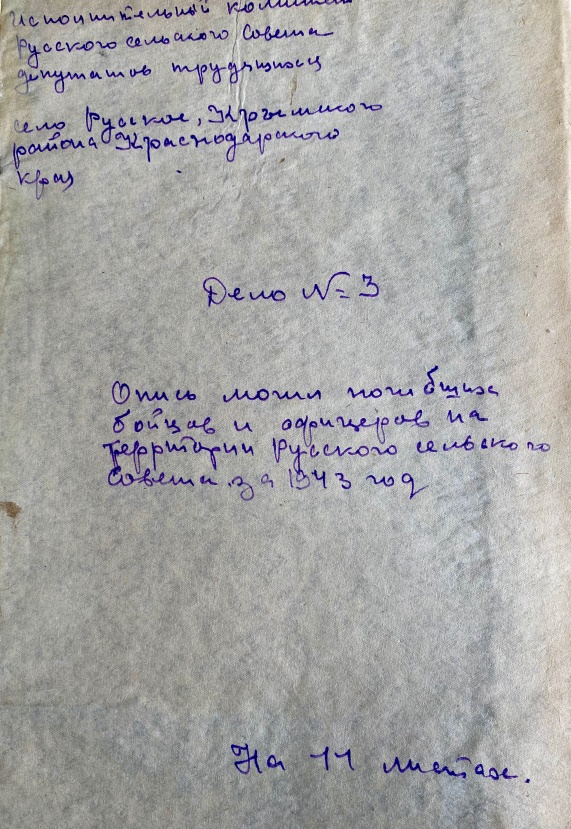 Исполнительный комитет
Русского сельского Совета
депутатов трудящихся
село Русское, Крымского
района Краснодарского
края
Дело № 3
Опись могил погибших
бойцов и офицеров на
территории Русского сельского
Совета за 1943 год
На 11 листах.